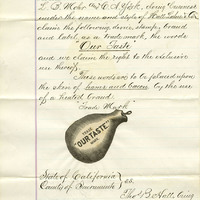 L. B. Mohr and C. A. York, doing business
under the name and style of Hall, Luhrs & Co.
claim the following device, stamp, brand
and label, as a trade mark, the words
"Our Taste"
and we claim the right to the exclusive
use thereof.
These words are to be placed upon
the skin of hams and bacon by the use
of a heated brand.
Trade Mark
"OUR TASTE"
State of California
County of Sacramento } ss.
Thos. B. Hall, being